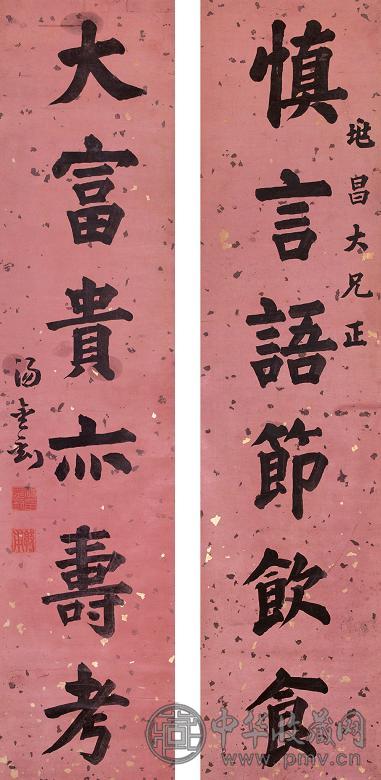 慎言語節飲食
昌大兄正
大富貴亦壽考
湯金釗
中华收藏网
www.pmv.cn